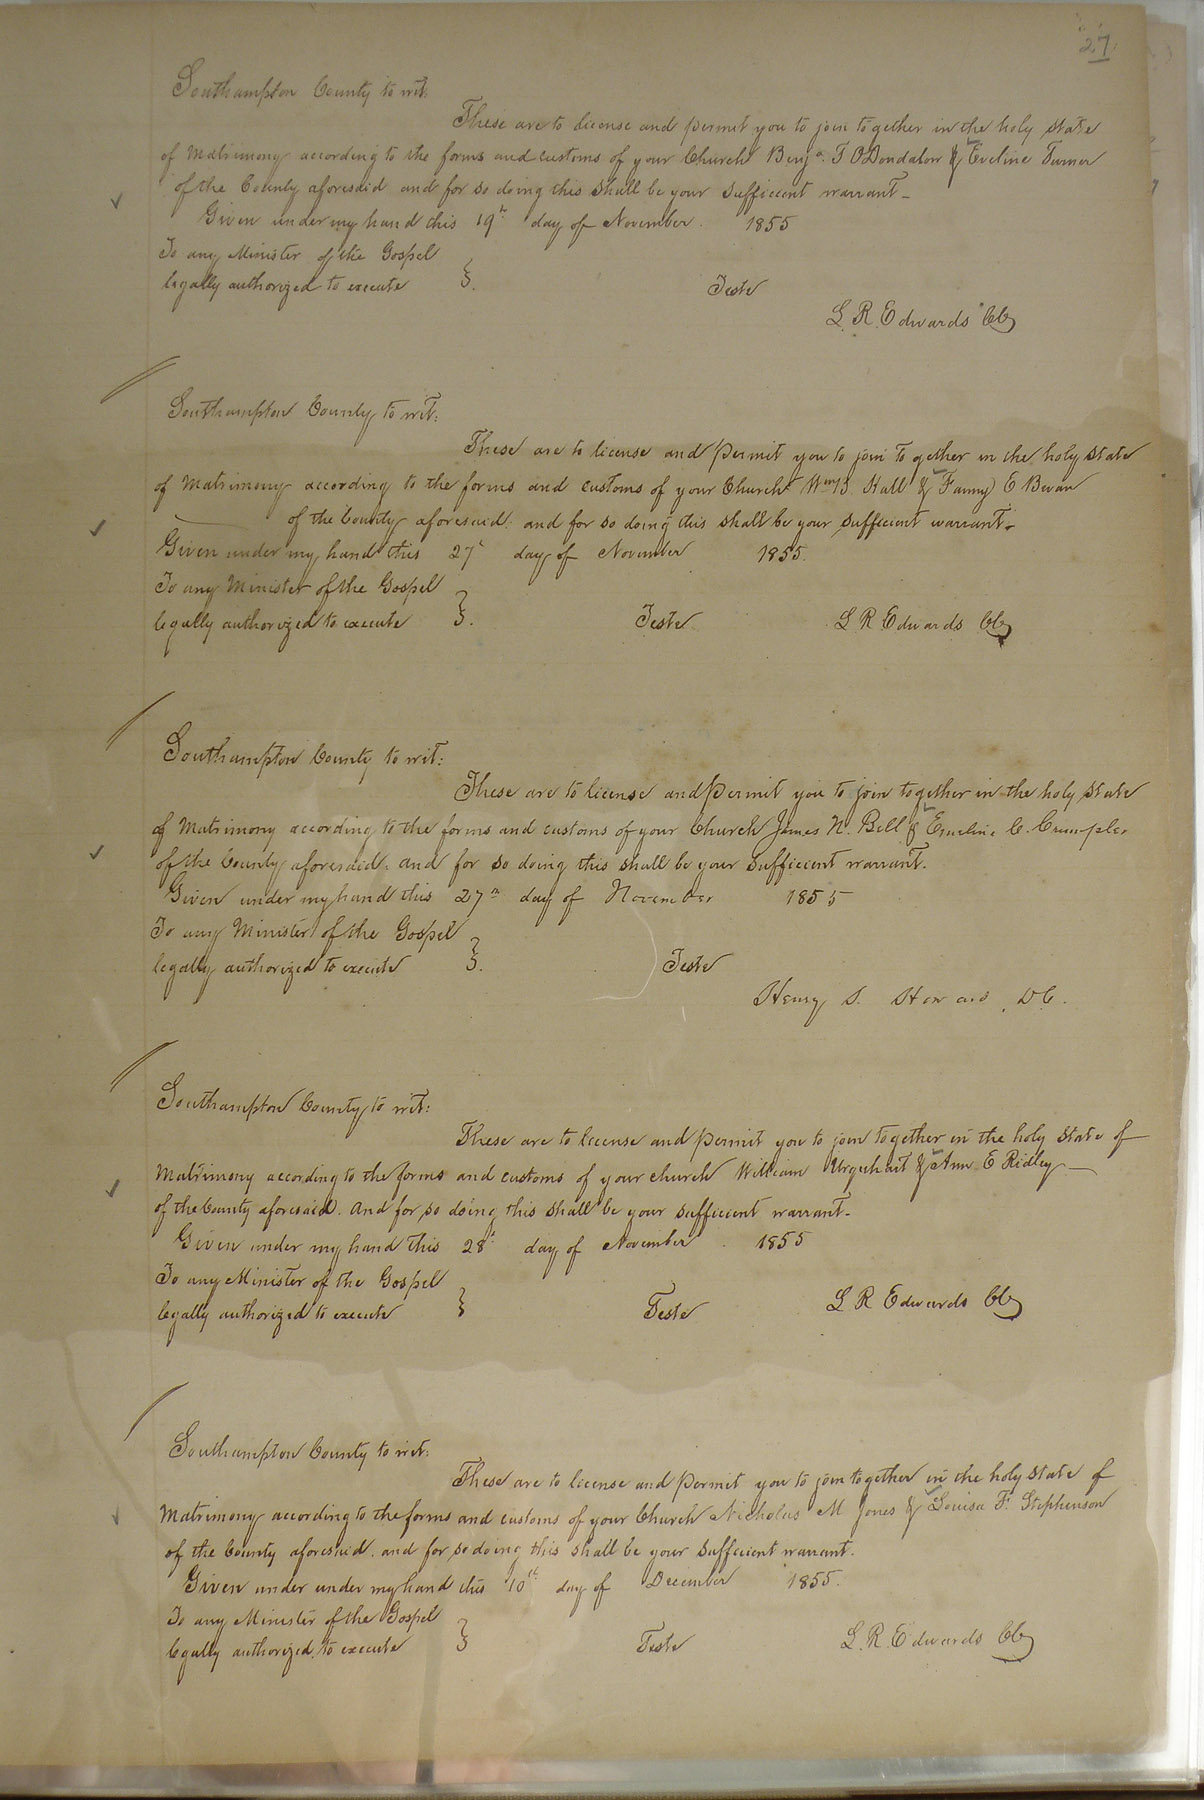 27
Southampton County to wit:
These are to license and permit you to join together in the holy state
of Matrimony according to the forms and customs of your Church Benj. T O'Dondalow & Eveline Turner
of the County aforesaid and for so doing this shall be your sufficient warrant-
Given under my hand this 19th day of November 1855
To any Minister of the Gospel
legally authorized to execute
Teste
L. R. Edwards Clk
Southampton County to wit:
These are to license and permit you to join together in the holy state
of Matrimony according to the forms and customs of your Church Wm B. Hall & Fanny E Bevan
of the County aforesaid: and for so doing this shall be your sufficient warrant-
Given under my hand this 27th day of November 1855.
To any Minister of the Gospel
legally authorized to execute
Teste L R Edwards Clk
Southampton County to wit:
These are to license and permit you to join together in the holy state
of Matrimony according to the forms and customs of your Church James N. Bell & Emeline C. Crumpler
of the County aforesaid. and for so doing this shall be your sufficient warrant.
Given under my hand this 27th day of November 1855
To any Minister of the Gospel
legally authorized to execute
Teste
Henry S. Howard, D.C.
Southampton County to wit:
These are to license and permit you to join together in the holy state of
Matrimony according to the forms and customs of your church William Urquhart & Ann E Ridley
of the County aforesaid. and for so doing this shall be your sufficient warrant-
Given under my hand this 28th day of November 1855
To any Minister of the Gospel
legally authorized to execute
Teste L R Edwards Clk
Southampton County to wit:
These are to license and permit you to join together in the holy state of
Matrimony according to the forms and customs of your Church Nicholas M Jones & Louisa F. Stephenson
of the County aforesaid. and for so doing this shall be your sufficient warrant.
Given under under my hand this 10th day of December 1855.
To any Minister of the Gospel
legally authorized to execute
Teste L. R. Edwards Clk